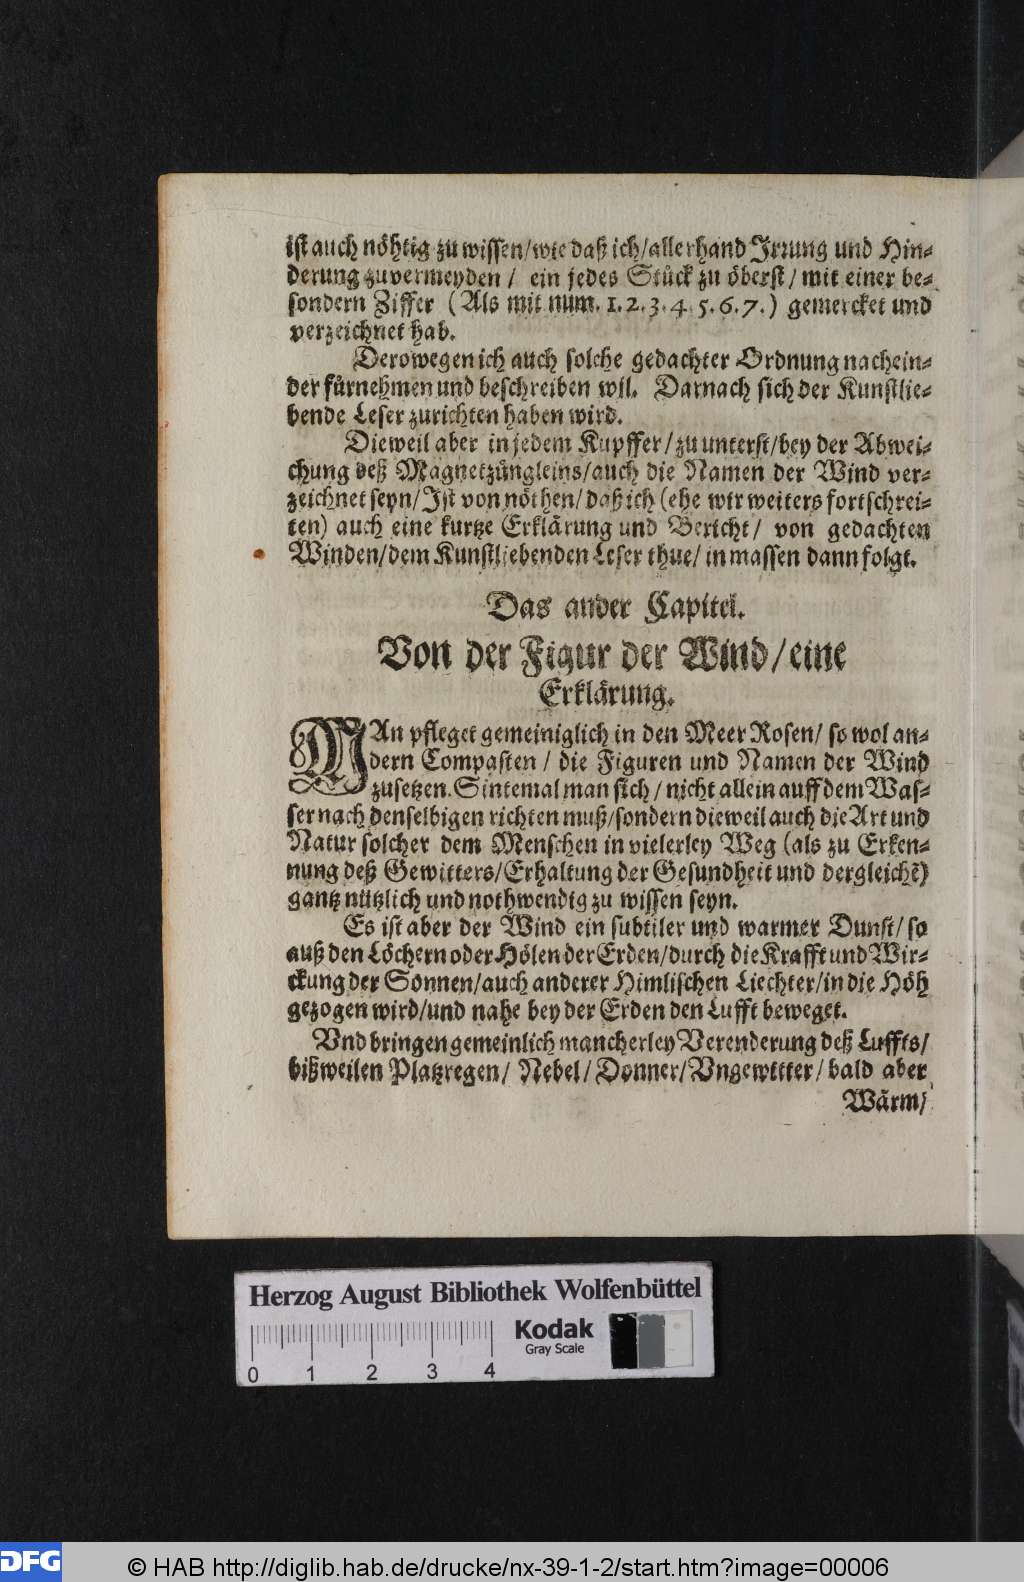 ist auch nöhtig zu wissen/wie daß ich/allerhand Jrrung und Hin-
derung zuvermeyden / ein jedes Stück zu öberst/ mit einer be-
sondern Ziffer (Als mit num. 1. 2. 3. 4. 5. 6. 7.) gemercket und
verzeichnet hab.
Derowegen ich auch solche gedachter Ordnung nachein-
der fürnehmen und beschreiben wil. Darnach sich der Kunstlie-
bende Leser zurichten haben wird.
Dieweil aber in jedem Kupffer/zu unterst/bey der Abwei-
chung deß Magnetzüngleins/auch die Namen der Wind ver-
zeichnet seyn/Jst von nöthen/daß ich (ehe wir weiters fortschrei-
ten) auch eine kurtze Erklärung und Bericht/ von gedachten
Winden/dem Kunstliebenden Leser thue/ in massen dann folgt.
Das ander Capitel.
Von der Figur der Wind/eine
Erklärung.
MAn pfleget gemeiniglich in den Meer Rosen/ so wol an-
dern Compasten / die Figuren und Namen der Wind
zusetzen. Sintemal man sich/ nicht allein auff dem Was-
ser nach denselbigen richten muß/sondern dieweil auch die Art und
Natur solcher dem Menschen in vielerley Weg (als zu Erken-
nung deß Gewitters/Erhaltung der Gesundheit und dergleichē)
gantz nützlich und nothwendig zu wissen seyn.
Es ist aber der Wind ein subtiler und warmer Dunst/ so
auß den Löchern oder Hölen der Erden/durch die Krafft und Wir-
ckung der Sonnen/auch anderer Himlischen Liechter/in die Höh
gezogen wird/und nahe bey der Erden den Lufft beweget.
Vnd bringen gemeinlich mancherley Verenderung deß Luffts/
bißweilen Platzregen/ Nebel/ Donner/Vngewitter/ bald aber
Wärm/
Herzog August Bibliothek Wolfenbüttel
Kodak
Gray Scale
0 1 2 3 4
DFG © HAB http://diglib.hab.de/drucke/nx-39-1-2/start.htm?image=00006